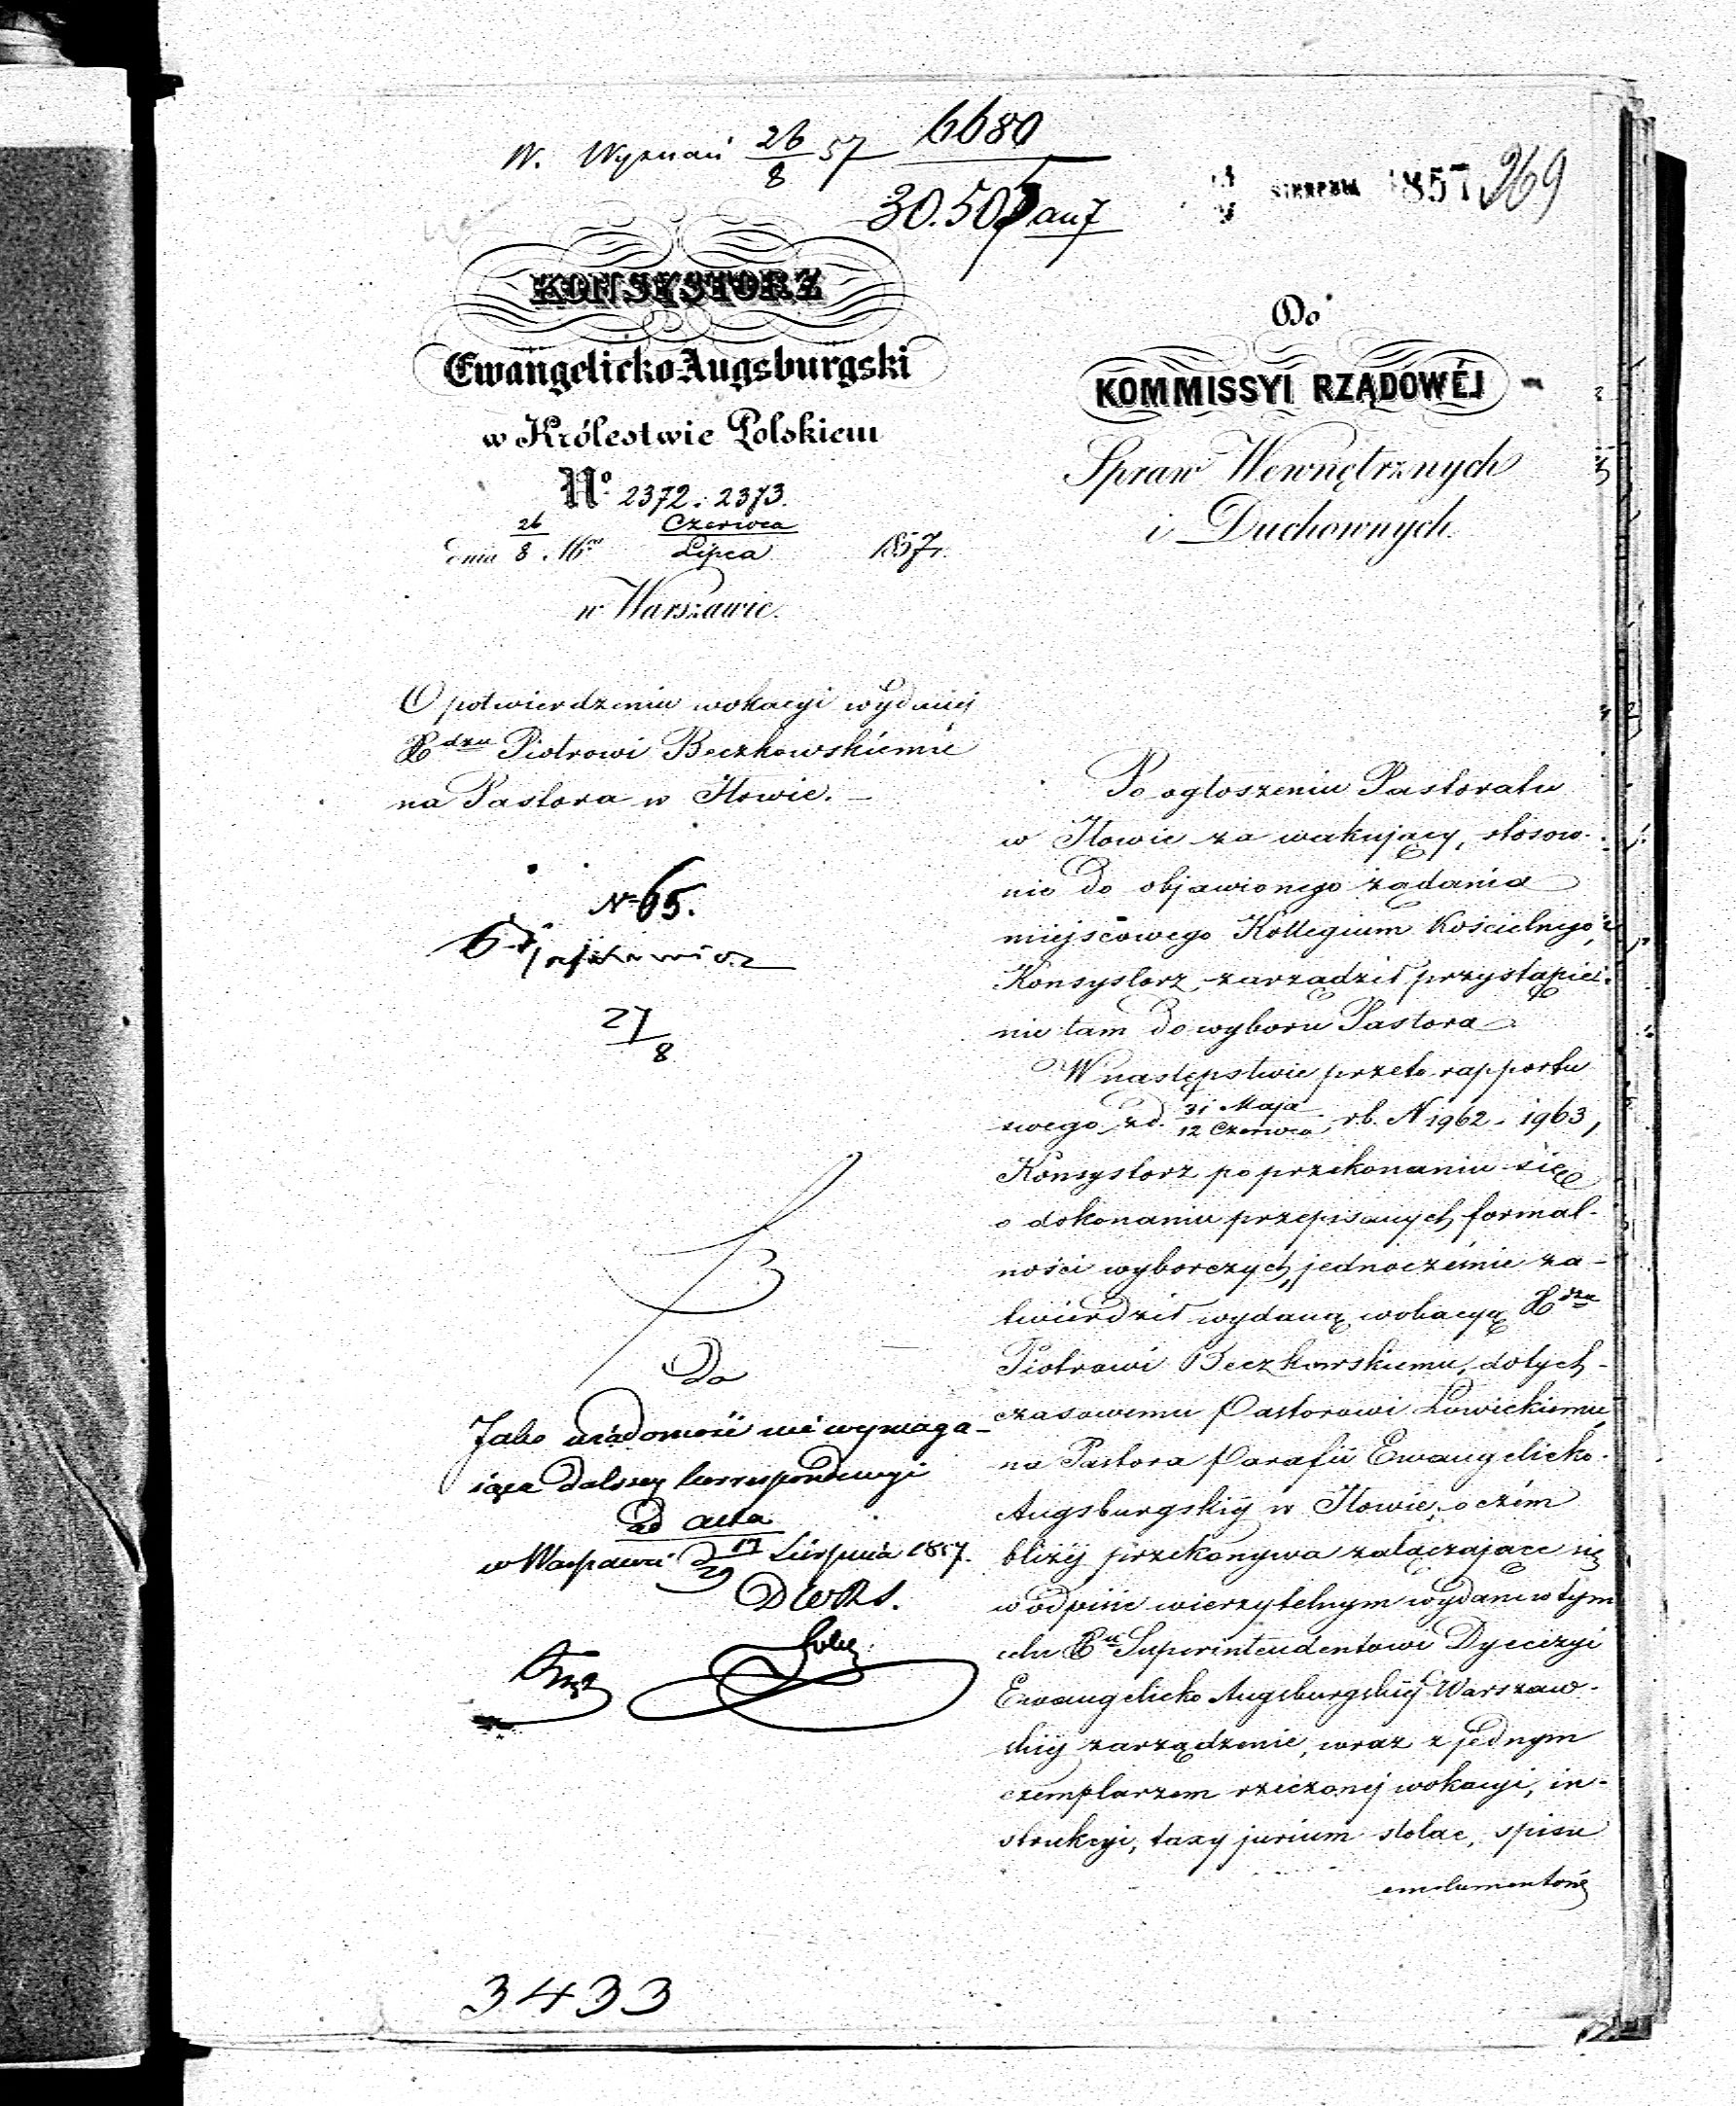 W. Wyznań 26/8 57 6680
30.505
SIERPNIA 1857
269
KONSYSTORZ
Ewangelicko-Augsburgski
w Królestwie Polskiem
No. 2372. 2373.
dnia 26/8 Mca Czerwca/Lipca 1857 r.
w Warszawie.
Do
KOMMISSYI RZĄDOWÉJ
Spraw Wewnętrznych
i Duchownych.
O potwierdzeniu wokacyi wydanéj
Xdzu Piotrowi Beczkowskiemu
na Pastora w Iłowie. —
No 65.
27/8
Do
Jako wiadomość nie wymaga-
iąca dalszey korrespondencyi
ad acta
w Warszawie d 17/29 Sierpnia 1857.
Po ogłoszeniu Pastoratu
w Iłowie za wakujący, stosow-
nie do objawionego żądania
miejscowego Kollegium Kościelnego,
Konsystorz zarządził przystąpie-
nie tam do wyboru Pastora.
W następstwie przeto rapportu
swego z d. 31 Maja/12 Czerwca r.b. N 1962 - 1963,
Konsystorz po przekonaniu się
o dokonaniu przepisanych formal-
ności wyborczych, jednocześnie za-
twierdził wydaną wokacyą Xdzu
Piotrowi Beczkowskiemu, dotych-
czasowemu Pastorowi Łowickiemu,
na Pastora Parafii Ewangelicko-
Augsburgskiéj w Iłowie, o czém
bliżéj przekonywa załączające się
w odpisie wierzytelnym wydane w tym
celu Superintendentowi Dyecezyi
Ewangelicko Augsburgskiéj Warszaw-
skiéj zarządzenie, wraz z jednym
exemplarzem rzeczonej wokacyi, in-
strukcyi, taxy jurium stolae, spisu
emolumentów
3433